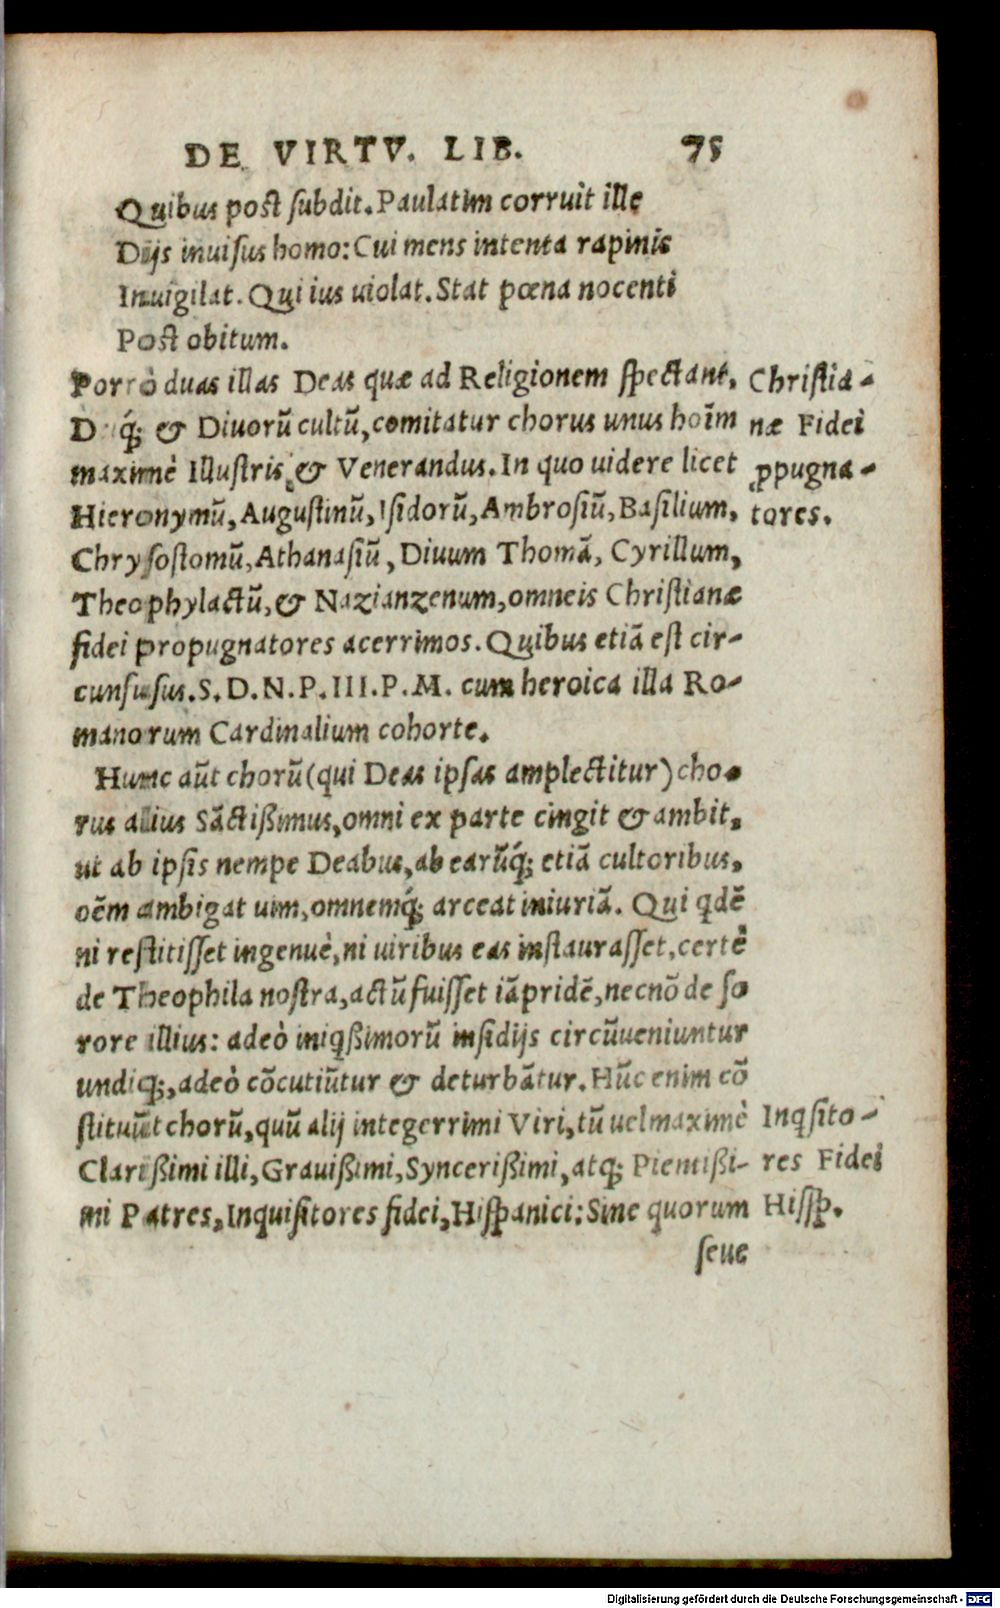 DE VIRTV. LIB. 75
Quibus post subdit. Paulatim corruit ille
Dijs inuisus homo: Cui mens intenta rapinis
Inuigilat. Qui ius uiolat. Stat pœna nocenti
Post obitum.
Porrò duas illas Deas quæ ad Religionem spectant,
& Diuorū cultū, comitatur chorus unus hoīm
maximè Illustris, & Venerandus. In quo uidere licet
Hieronymū, Augustinū, Isidorū, Ambrosiū, Basilium,
Chrysostomū, Athanasiū, Diuum Thomā, Cyrillum,
Theophylactū, & Nazianzenum, omneis Christianæ
fidei propugnatores acerrimos. Quibus etiā est cir-
cunfusus. S. D. N. P. III. P. M. cum heroica illa Ro-
manorum Cardinalium cohorte.
Christia-
næ Fidei
ꝓpugna-
tores.
Hunc aūt chorū (qui Deas ipsas amplectitur) cho-
rus alius Sāctißimus, omni ex parte cingit & ambit,
ut ab ipsis nempe Deabus, ab earūq́; etiā cultoribus,
oēm ambigat uim, omnemq́; arceat iniuriā. Qui qdē
ni restitisset ingenuè, ni uiribus eas instaurasset, certè
de Theophila nostra, actū fuisset iāpridē, necnō de so
rore illius: adeò iniqßimorū insidijs circūueniuntur
undiq;, adeò cōcutiūtur & deturbātur. Hūc enim cō
stituūt chorū, quū alij integerrimi Viri, tū uel maximè
Clarißimi illi, Grauißimi, Syncerißimi, atq; Pientißi-
mi Patres, Inquisitores fidei, Hispanici: Sine quorum
Inqsito-
res Fidei
Hissp.
seue
Digitalisierung gefördert durch die Deutsche Forschungsgemeinschaft - DFG